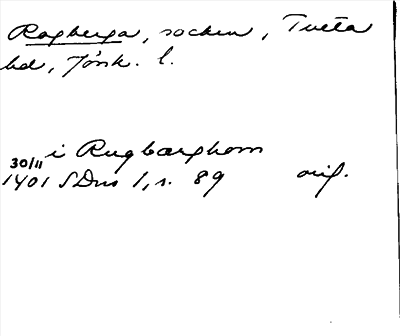 Rogberga, socken, Tveta
hd, Jönk. l.
i Rugbærghom
30/11
1401 SDns 1, s. 89 orig.